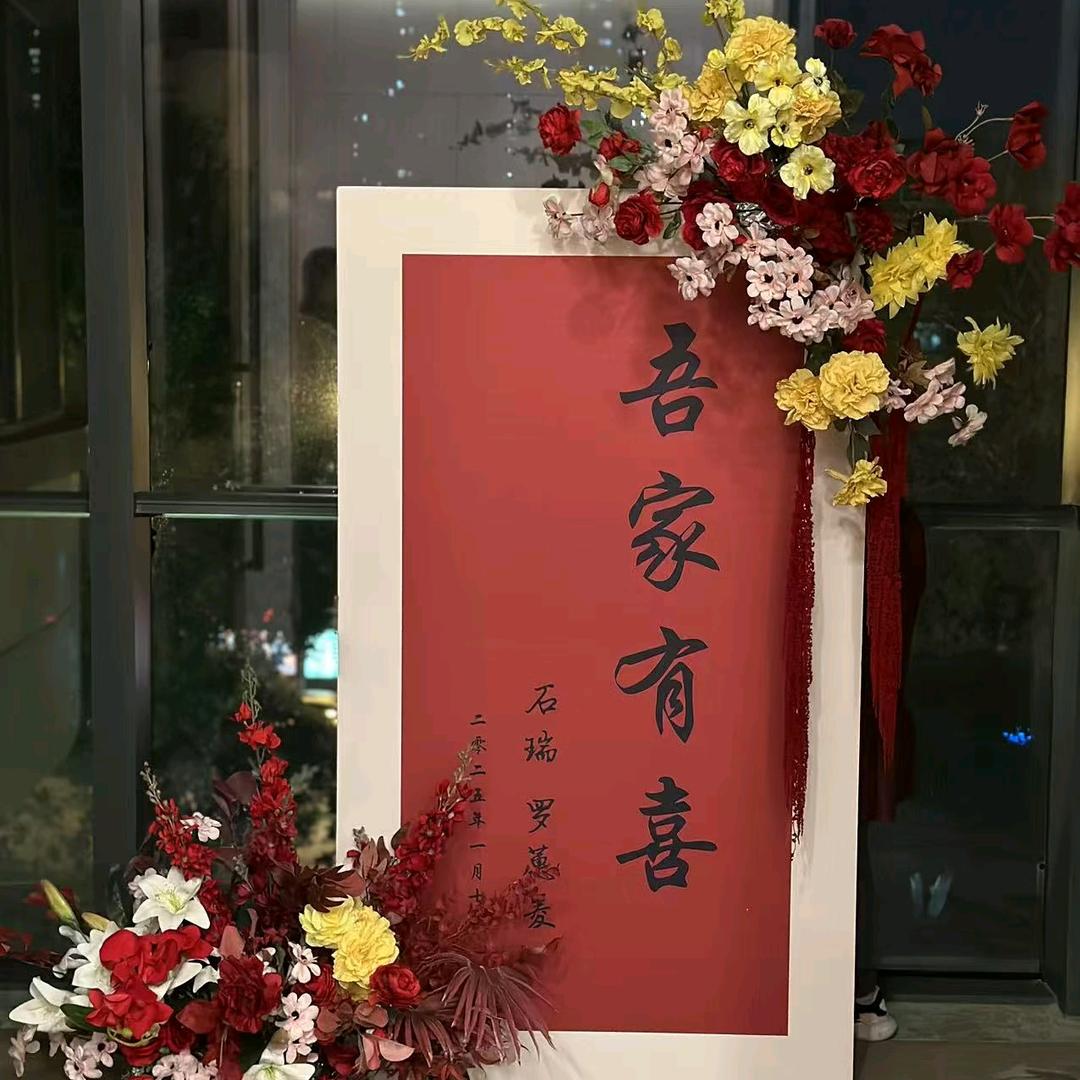 吾家有喜
石瑞 罗蕙菱
二零二五年一月十